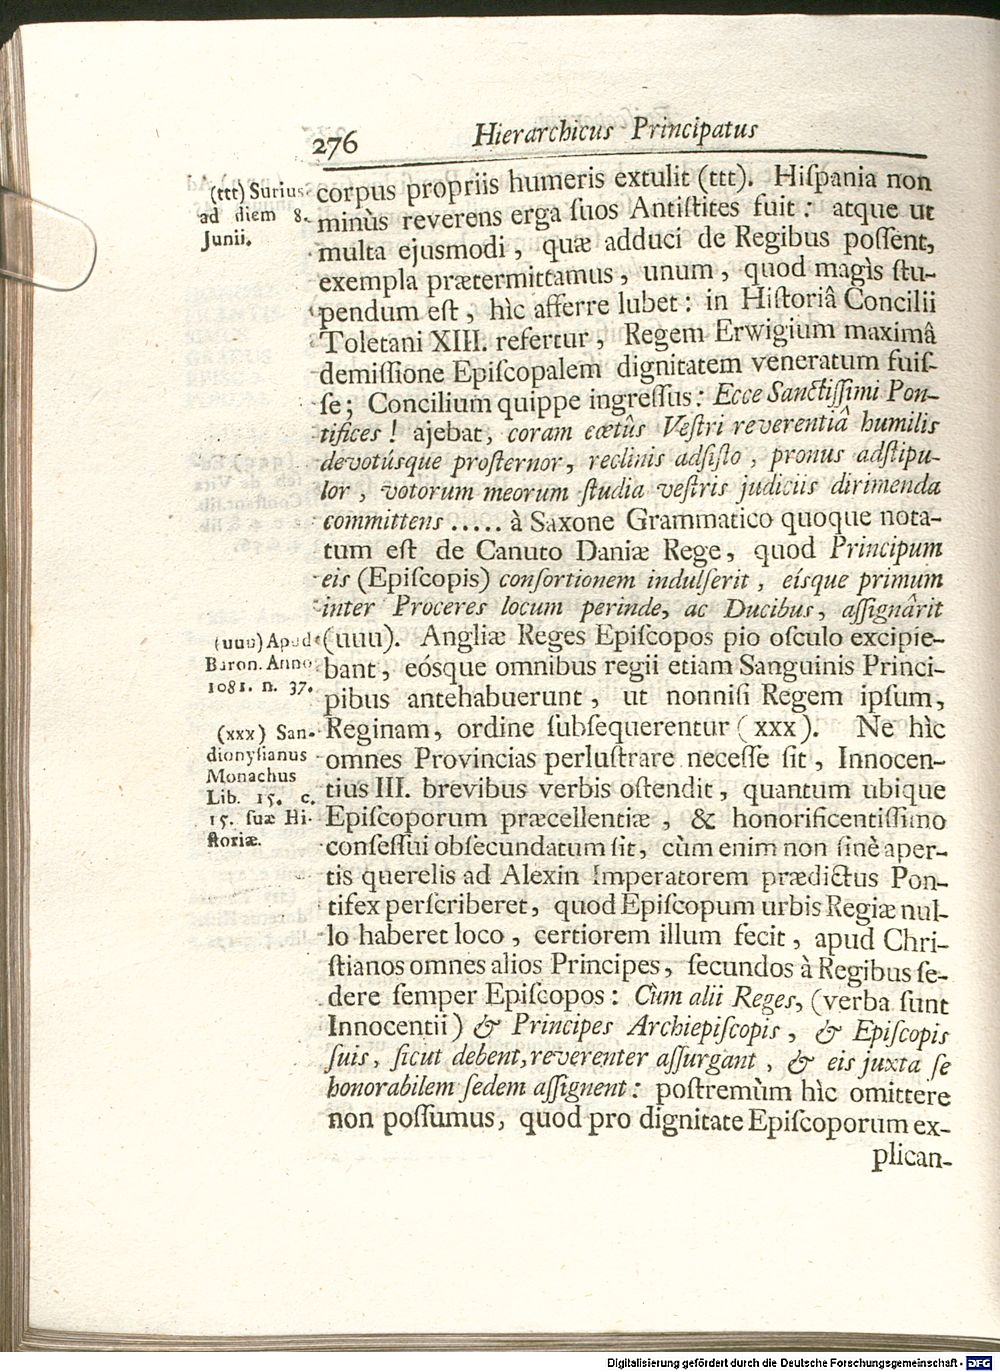 276 Hierarchicus Principatus
(ttt) Surius
ad diem 8.
Junii.
corpus propriis humeris extulit (ttt). Hiſpania non
minùs reverens erga ſuos Antiſtites fuit: atque ut
multa ejusmodi, quæ adduci de Regibus poſſent,
exempla prætermittamus, unum, quod magìs ſtu-
pendum eſt, hìc afferre lubet: in Hiſtoriâ Concilii
Toletani XIII. refertur, Regem Erwigium maximâ
demiſſione Epiſcopalem dignitatem veneratum fuiſ-
ſe; Concilium quippe ingreſſus: Ecce Sanctiſſimi Pon-
tifices! ajebat, coram cœtûs Veſtri reverentiâ humilis
devotúsque proſternor, reclinis adſiſto, pronus adſtipu-
lor, votorum meorum ſtudia veſtris judiciis dirimenda
committens ..... à Saxone Grammatico quoque nota-
tum eſt de Canuto Daniæ Rege, quod Principum
eis (Epiſcopis) conſortionem indulſerit, eísque primum
inter Proceres locum perinde, ac Ducibus, aſſignârit
(uuu) Apud
Baron. Anno
1081. n. 37.
(uuu). Angliæ Reges Epiſcopos pio oſculo excipie-
bant, eósque omnibus regii etiam Sanguinis Princi-
pibus antehabuerunt, ut nonniſi Regem ipſum,
(xxx) San-
dionyſianus
Monachus
Lib. 15. c.
15. ſuæ Hi-
ſtoriæ.
Reginam, ordine ſubſequerentur (xxx). Ne hìc
omnes Provincias perluſtrare neceſſe ſit, Innocen-
tius III. brevibus verbis oſtendit, quantum ubique
Epiſcoporum præcellentiæ, & honorificentiſſimo
conſeſſui obſecundatum ſit, cùm enim non ſinè aper-
tis querelis ad Alexin Imperatorem prædictus Pon-
tifex perſcriberet, quod Epiſcopum urbis Regiæ nul-
lo haberet loco, certiorem illum fecit, apud Chri-
ſtianos omnes alios Principes, ſecundos à Regibus ſe-
dere ſemper Epiſcopos: Cùm alii Reges, (verba ſunt
Innocentii) & Principes Archiepiſcopis, & Epiſcopis
ſuis, ſicut debent, reverenter aſſurgant, & eis juxta ſe
honorabilem ſedem aſſignent: poſtremùm hìc omittere
non poſſumus, quod pro dignitate Epiſcoporum ex-
plican-
Digitalisierung gefördert durch die Deutsche Forschungsgemeinschaft - DFG